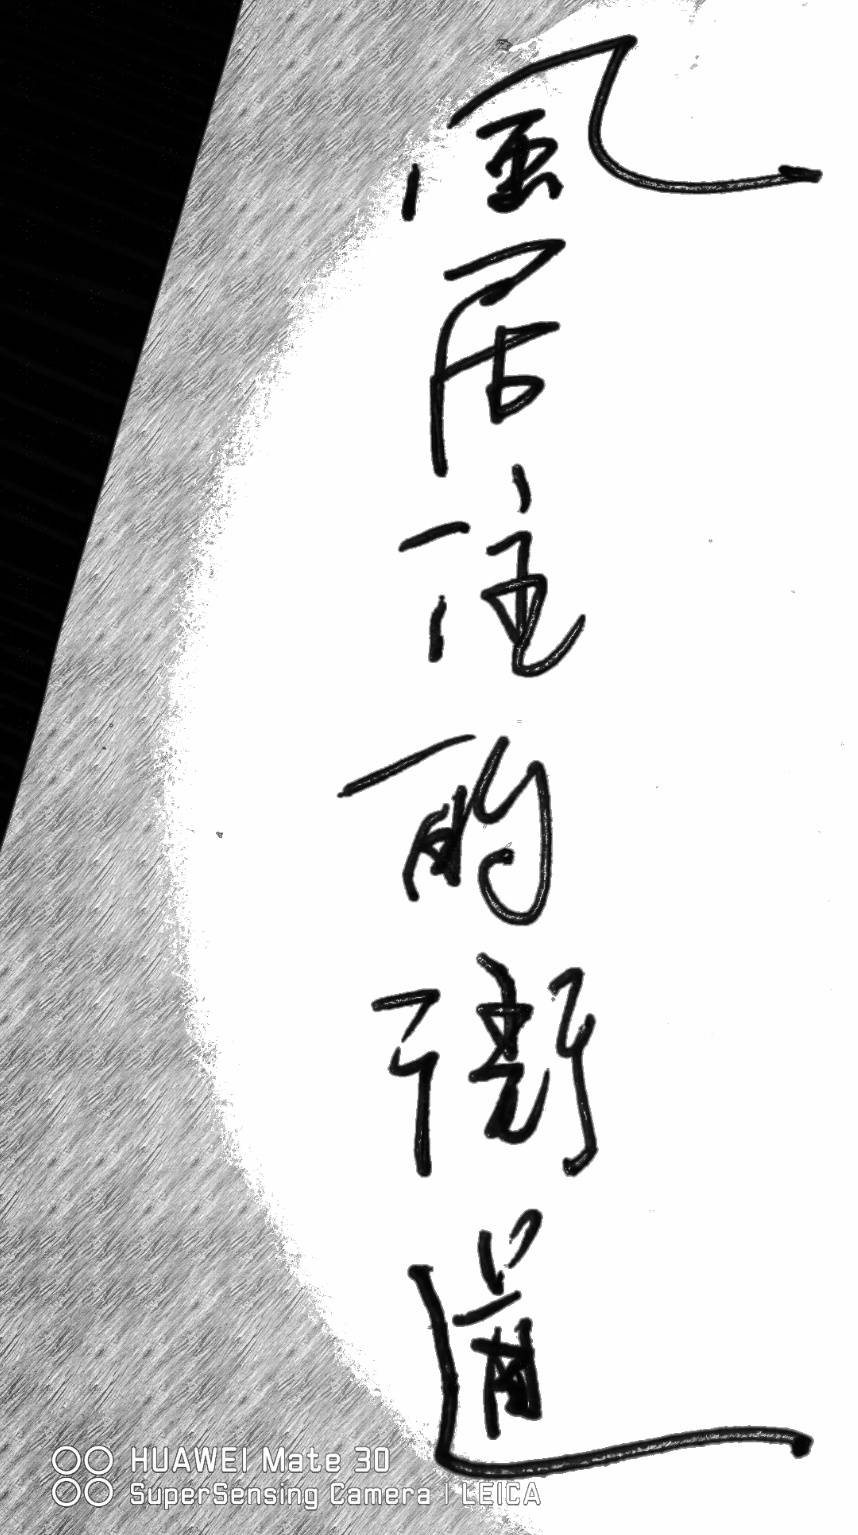 風居住的街道
HUAWEI Mate 30
SuperSensing Camera | LEICA